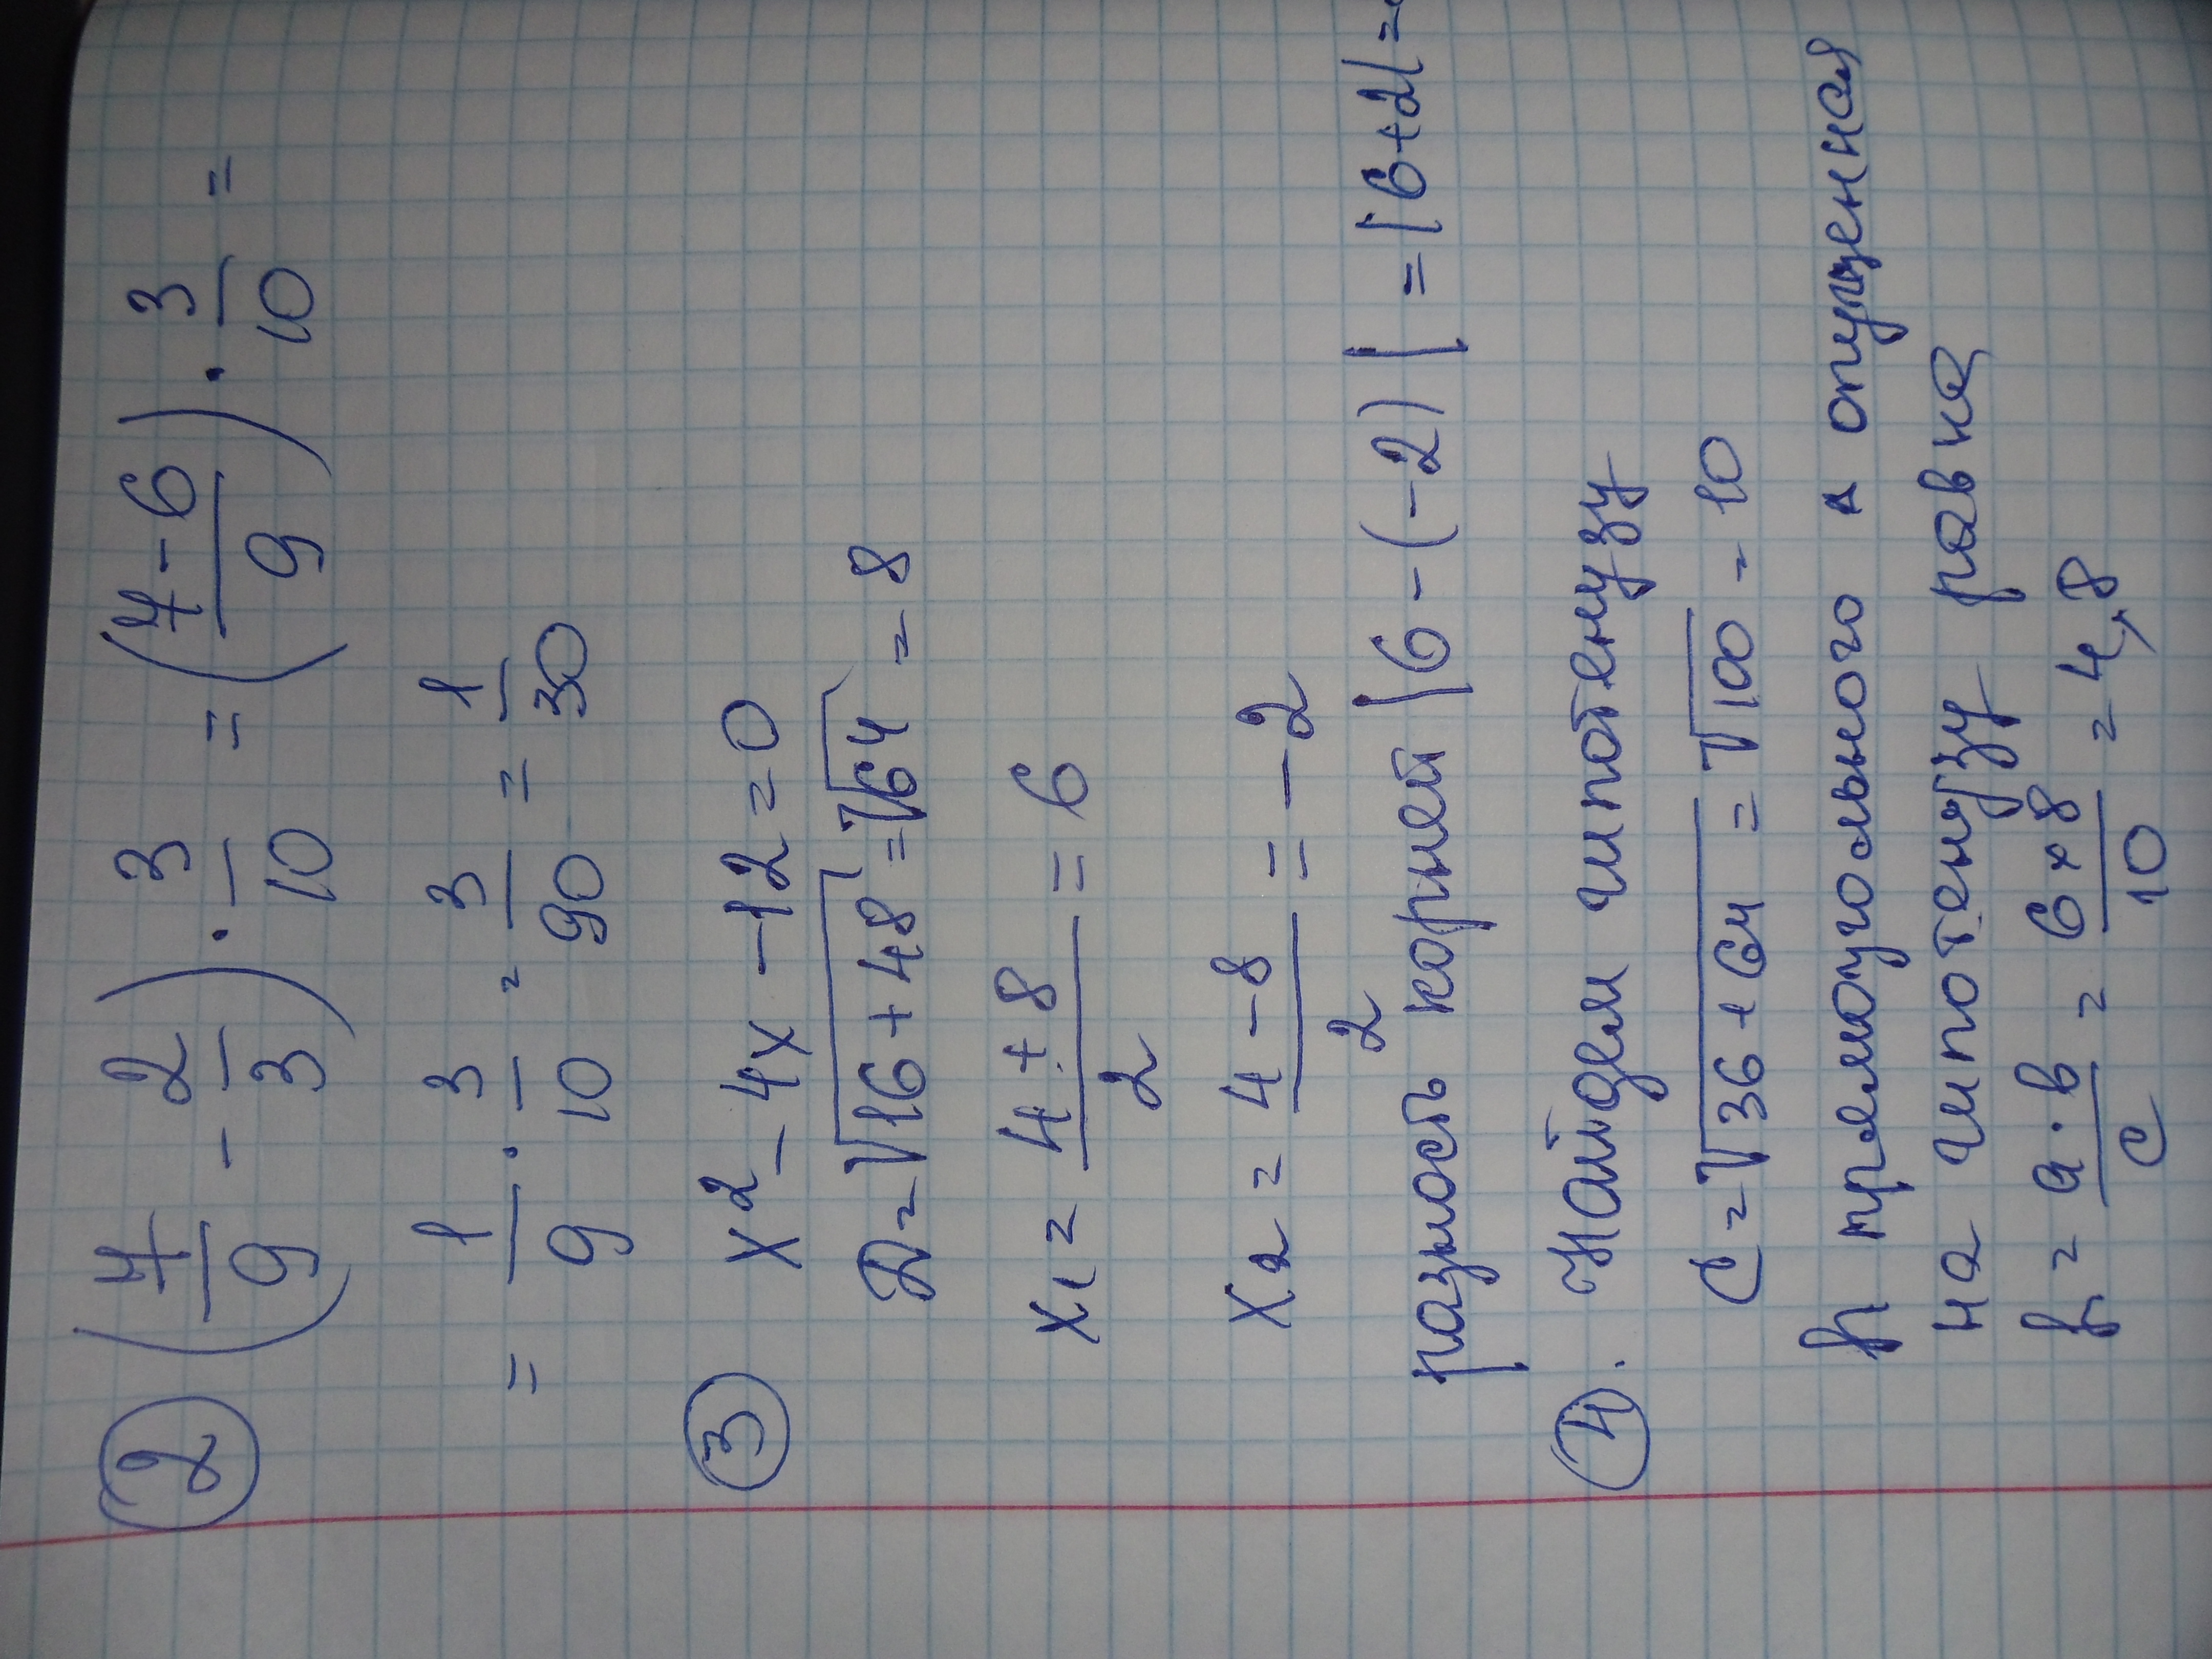 ② (7/9 - 2/3) · 3/10 = (7-6/9) · 3/10 =
= 1/9 · 3/10 = 3/90 = 1/30
③ x² - 4x - 12 = 0
D = √16 + 48 = √64 = 8
x₁ = 4 + 8/2 = 6
x₂ = 4 - 8/2 = -2
разность корней |6 - (-2)| = |6+2| =
④. Найдем гипотенузу
C = √36 + 64 = √100 = 10
h прямоугольного опущенная
на гипотенузу равна
h = a · b/c = 6 × 8/10 = 4,8